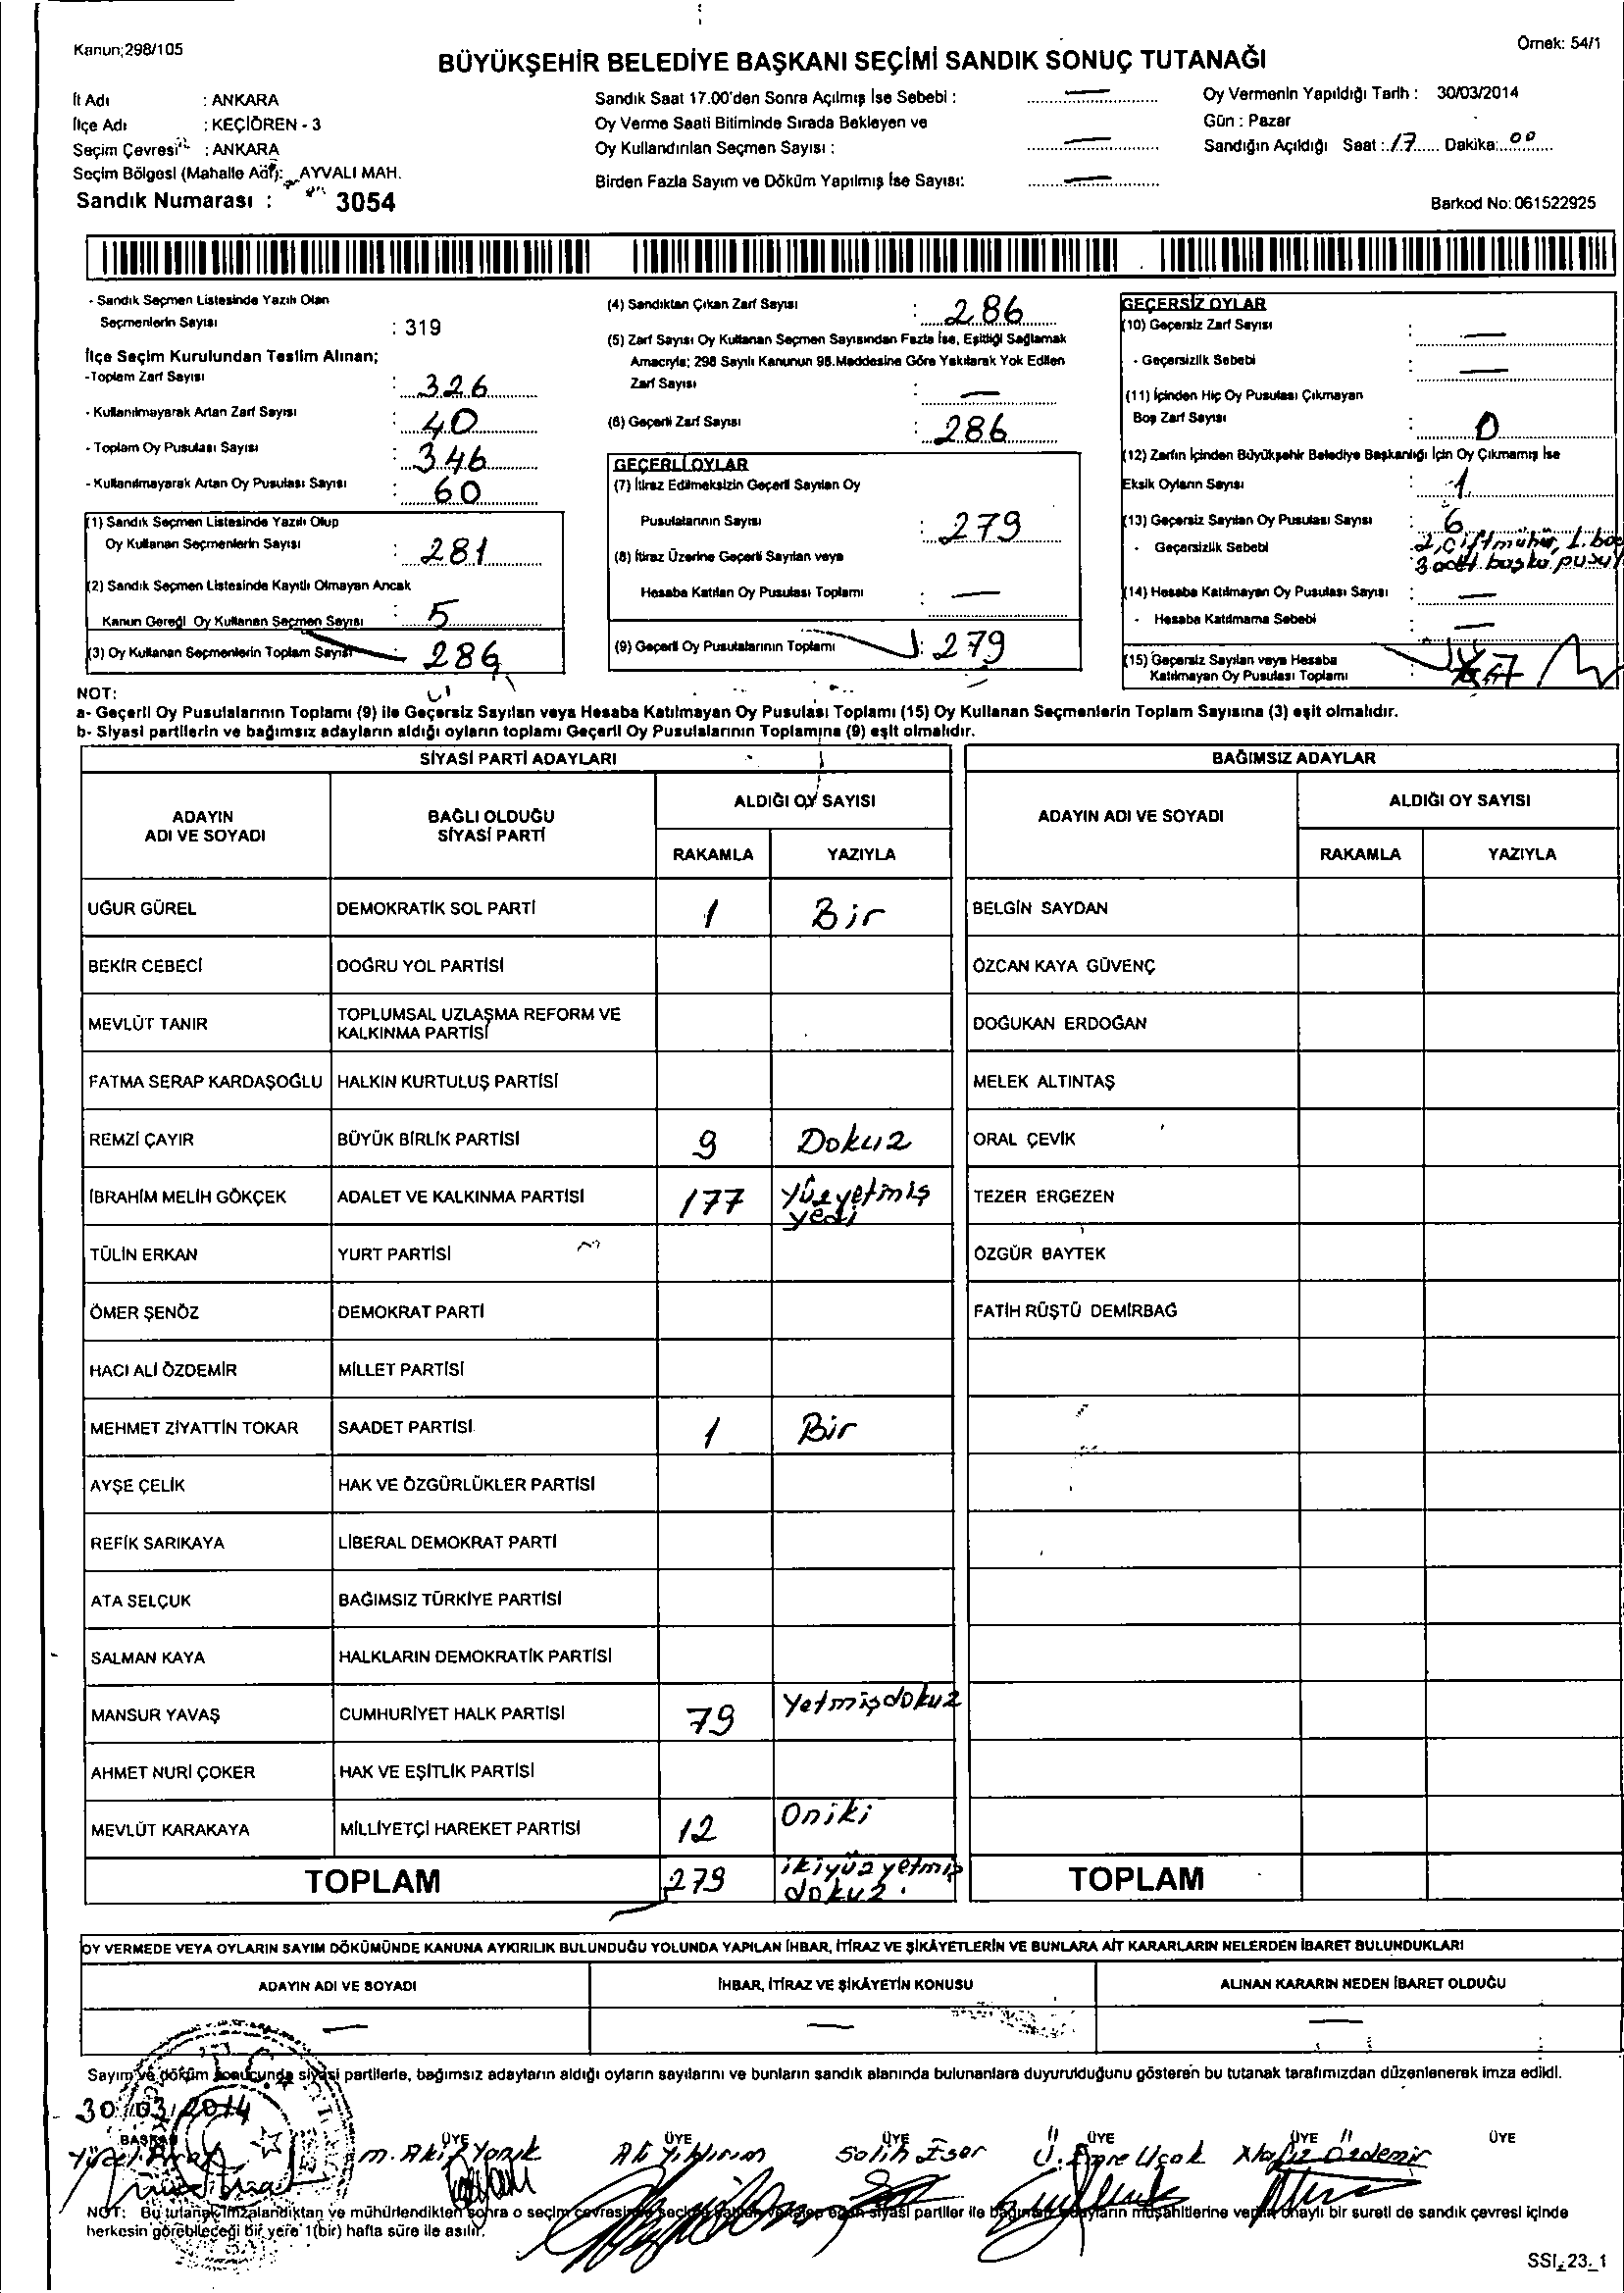 Kanun;298/105
Örnek: 54/1
BÜYÜKŞEHİR BELEDİYE BAŞKANI SEÇİMİ SANDIK SONUÇ TUTANAĞI
İl Adı : ANKARA
İlçe Adı : KEÇİÖREN - 3
Seçim Çevresi : ANKARA
Seçim Bölgesi (Mahalle Adı): AYVALI MAH.
Sandık Numarası : 3054
Sandık Saat 17.00'den Sonra Açılmış İse Sebebi : —
Oy Verme Saati Bitiminde Sırada Bekleyen ve
Oy Kullandırılan Seçmen Sayısı : —
Birden Fazla Sayım ve Döküm Yapılmış İse Sayısı: —
Oy Vermenin Yapıldığı Tarih : 30/03/2014
Gün : Pazar
Sandığın Açıldığı Saat : 17 Dakika: 00
Barkod No: 061522925
- Sandık Seçmen Listesinde Yazılı Olan
Seçmenlerin Sayısı : 319
İlçe Seçim Kurulundan Teslim Alınan;
-Toplam Zarf Sayısı : 326
- Kullanılmayarak Artan Zarf Sayısı : 40
- Toplam Oy Pusulası Sayısı : 346
- Kullanılmayarak Artan Oy Pusulası Sayısı : 60
(1) Sandık Seçmen Listesinde Yazılı Olup
Oy Kullanan Seçmenlerin Sayısı : 281
(2) Sandık Seçmen Listesinde Kayıtlı Olmayan Ancak
Kanun Gereği Oy Kullanan Seçmen Sayısı : 5
(3) Oy Kullanan Seçmenlerin Toplam Sayısı 286
(4) Sandıktan Çıkan Zarf Sayısı : 286
(5) Zarf Sayısı Oy Kullanan Seçmen Sayısından Fazla İse, Eşitliği Sağlamak
Amacıyla; 298 Sayılı Kanunun 98.Maddesine Göre Yakılarak Yok Edilen
Zarf Sayısı : —
(6) Geçerli Zarf Sayısı : 286
GEÇERLİ OYLAR
(7) İtiraz Edilmeksizin Geçerli Sayılan Oy
Pusulalarının Sayısı : 279
(8) İtiraz Üzerine Geçerli Sayılan veya
Hesaba Katılan Oy Pusulası Toplamı : —
(9) Geçerli Oy Pusulalarının Toplamı : 279
GEÇERSİZ OYLAR
(10) Geçersiz Zarf Sayısı : —
- Geçersizlik Sebebi : —
(11) İçinden Hiç Oy Pusulası Çıkmayan
Boş Zarf Sayısı : 0
(12) Zarfın İçinden Büyükşehir Belediye Başkanlığı İçin Oy Çıkmamış İse
Eksik Oyların Sayısı : 1
(13) Geçersiz Sayılan Oy Pusulası Sayısı : 6
- Geçersizlik Sebebi : 2, çift mühür, 1. boş
3 adet başka pusu
(14) Hesaba Katılmayan Oy Pusulası Sayısı : —
- Hesaba Katılmama Sebebi : —
(15) Geçersiz Sayılan veya Hesaba
Katılmayan Oy Pusulası Toplamı : 7
NOT:
a- Geçerli Oy Pusulalarının Toplamı (9) ile Geçersiz Sayılan veya Hesaba Katılmayan Oy Pusulası Toplamı (15) Oy Kullanan Seçmenlerin Toplam Sayısına (3) eşit olmalıdır.
b- Siyasi partilerin ve bağımsız adayların aldığı oyların toplamı Geçerli Oy Pusulalarının Toplamına (9) eşit olmalıdır.
SİYASİ PARTİ ADAYLARI
BAĞIMSIZ ADAYLAR
ADAYIN
ADI VE SOYADI
BAĞLI OLDUĞU
SİYASİ PARTİ
ALDIĞI OY SAYISI
RAKAMLA YAZIYLA
ADAYIN ADI VE SOYADI
ALDIĞI OY SAYISI
RAKAMLA YAZIYLA
UĞUR GÜREL DEMOKRATİK SOL PARTİ 1 Bir BELGİN SAYDAN
BEKİR CEBECİ DOĞRU YOL PARTİSİ ÖZCAN KAYA GÜVENÇ
MEVLÜT TANIR TOPLUMSAL UZLAŞMA REFORM VE
KALKINMA PARTİSİ DOĞUKAN ERDOĞAN
FATMA SERAP KARDAŞOĞLU HALKIN KURTULUŞ PARTİSİ MELEK ALTINTAŞ
REMZİ ÇAYIR BÜYÜK BİRLİK PARTİSİ 9 Dokuz ORAL ÇEVİK
İBRAHİM MELİH GÖKÇEK ADALET VE KALKINMA PARTİSİ 177 Yüzyetmiş
yedi TEZER ERGEZEN
TÜLİN ERKAN YURT PARTİSİ ÖZGÜR BAYTEK
ÖMER ŞENÖZ DEMOKRAT PARTİ FATİH RÜŞTÜ DEMİRBAĞ
HACI ALİ ÖZDEMİR MİLLET PARTİSİ
MEHMET ZİYATTİN TOKAR SAADET PARTİSİ 1 Bir
AYŞE ÇELİK HAK VE ÖZGÜRLÜKLER PARTİSİ
REFİK SARIKAYA LİBERAL DEMOKRAT PARTİ
ATA SELÇUK BAĞIMSIZ TÜRKİYE PARTİSİ
SALMAN KAYA HALKLARIN DEMOKRATİK PARTİSİ
MANSUR YAVAŞ CUMHURİYET HALK PARTİSİ 79 Yetmişdokuz
AHMET NURİ ÇOKER HAK VE EŞİTLİK PARTİSİ
MEVLÜT KARAKAYA MİLLİYETÇİ HAREKET PARTİSİ 12 Oniki
TOPLAM 279 ikiyüzyetmiş
dokuz. TOPLAM
OY VERMEDE VEYA OYLARIN SAYIM DÖKÜMÜNDE KANUNA AYKIRILIK BULUNDUĞU YOLUNDA YAPILAN İHBAR, İTİRAZ VE ŞİKÂYETLERİN VE BUNLARA AİT KARARLARIN NELERDEN İBARET BULUNDUKLARI
ADAYIN ADI VE SOYADI İHBAR, İTİRAZ VE ŞİKÂYETİN KONUSU ALINAN KARARIN NEDEN İBARET OLDUĞU
— — —
Sayım ve döküm sonucunda siyasi partilerle, bağımsız adayların aldığı oyların sayılarını ve bunların sandık alanında bulunanlara duyurulduğunu gösteren bu tutanak tarafımızdan düzenlenerek imza edildi.
T.C.
30/03/2014
BAŞKAN ÜYE ÜYE ÜYE ÜYE ÜYE ÜYE
m. Akif Yanık Ali Yıldırım Salih Eser Ü. Emre Uçak Hafız Özdemir
NOT: Bu tutanak imzalandıktan ve mühürlendikten sonra o seçim çevresinde seçime katılan ve talep eden siyasi partiler ile bağımsız adayların müşahitlerine verilir onaylı bir sureti de sandık çevresi içinde
herkesin görebileceği bir yere 1(bir) hafta süre ile asılır.
SSI_23_1